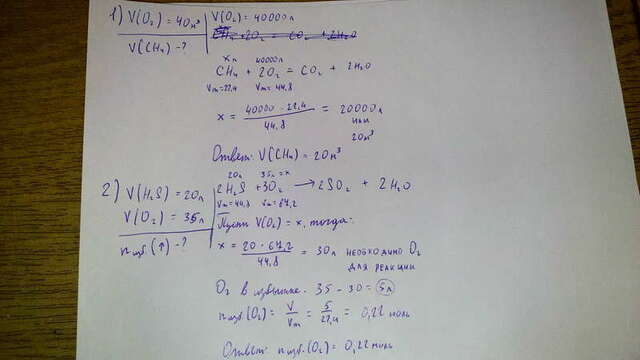 1) V(O₂) = 40м³
V(CH₄) - ?
V(O₂) = 40000л
CH₄ + 2O₂ = CO₂ + 2H₂O
xл 40000л
CH₄ + 2O₂ = CO₂ + 2H₂O
Vm=22,4 Vm=44,8
x = 40000 · 22,4 / 44,8 = 20000л
или
20м³
Ответ: V(CH₄) = 20м³
2) V(H₂S) = 20л
V(O₂) = 35л
nизб.(↑) - ?
20л 35л=x
2H₂S + 3O₂ → 2SO₂ + 2H₂O
Vm=44,8 Vm=67,2
Пусть V(O₂) = x, тогда:
x = 20 · 67,2 / 44,8 = 30л необходимо O₂
для реакции
O₂ в избытке. 35 - 30 = 5л
nизб.(O₂) = V / Vm = 5 / 22,4 = 0,22 моль
Ответ: nизб.(O₂) = 0,22 моль